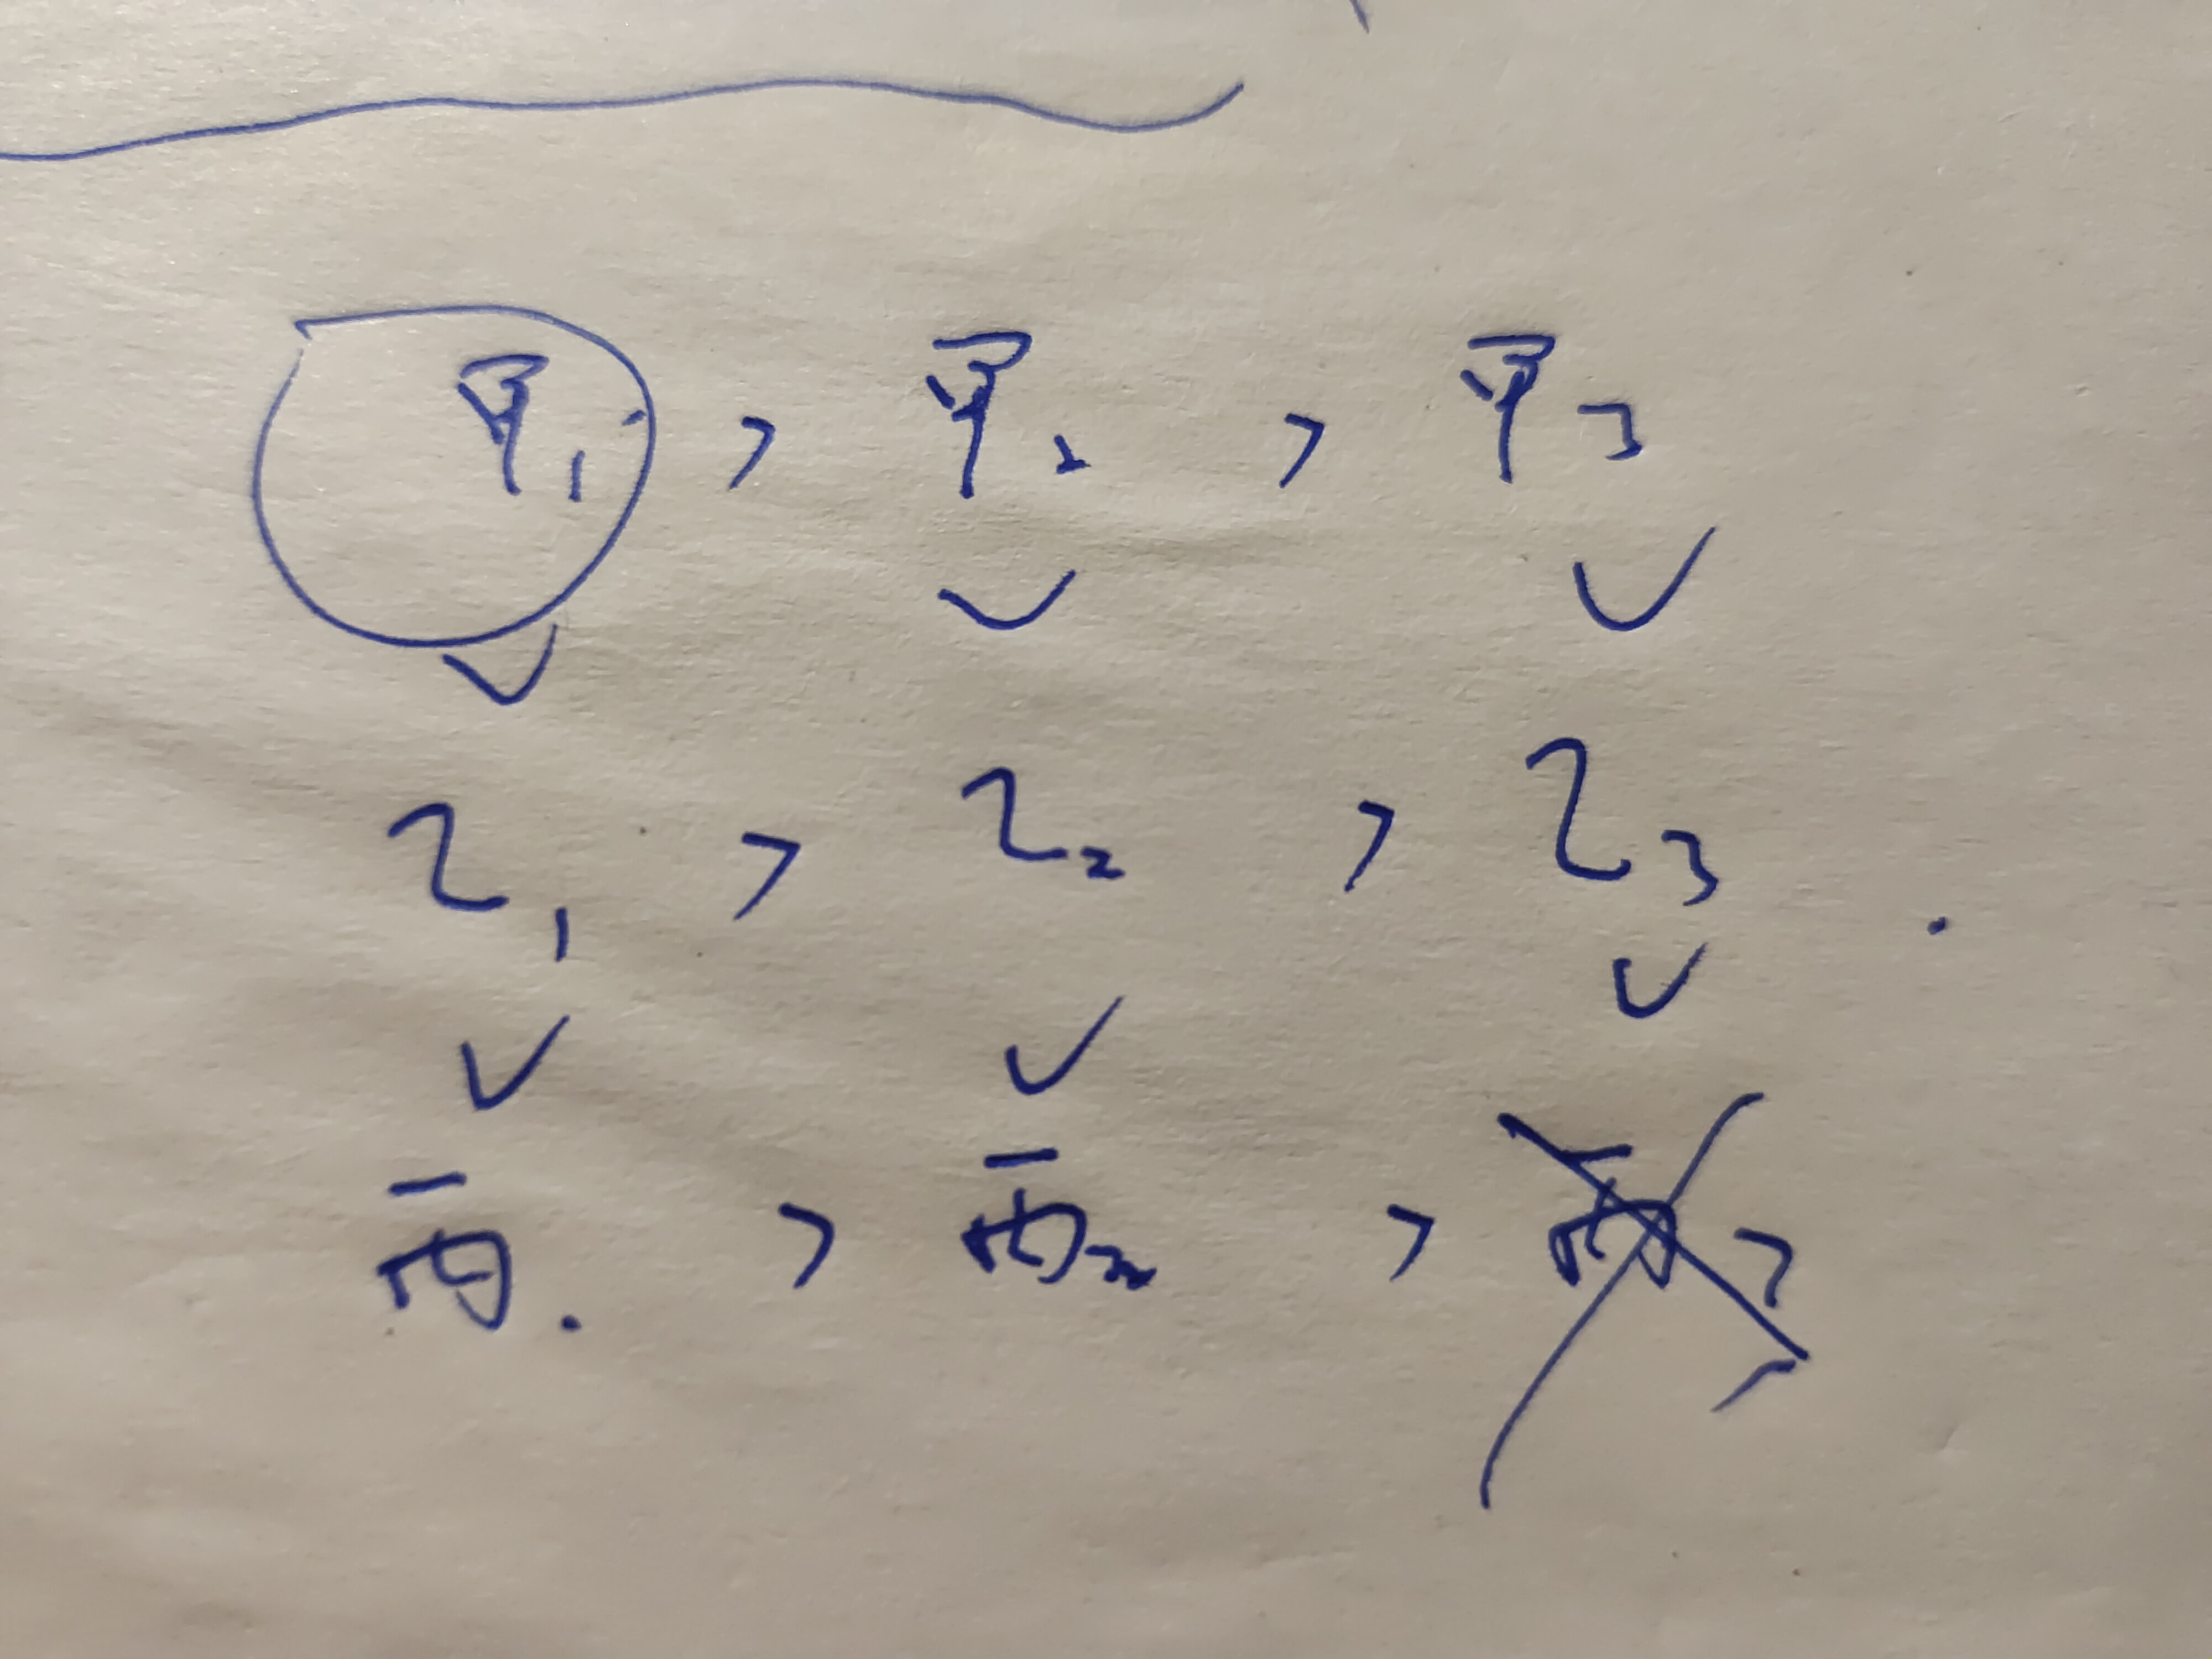 甲1 > 甲2 > 甲3
∨ ∨ ∨
乙1 > 乙2 > 乙3
∨ ∨ ∨
丙1 > 丙2 > 丙3